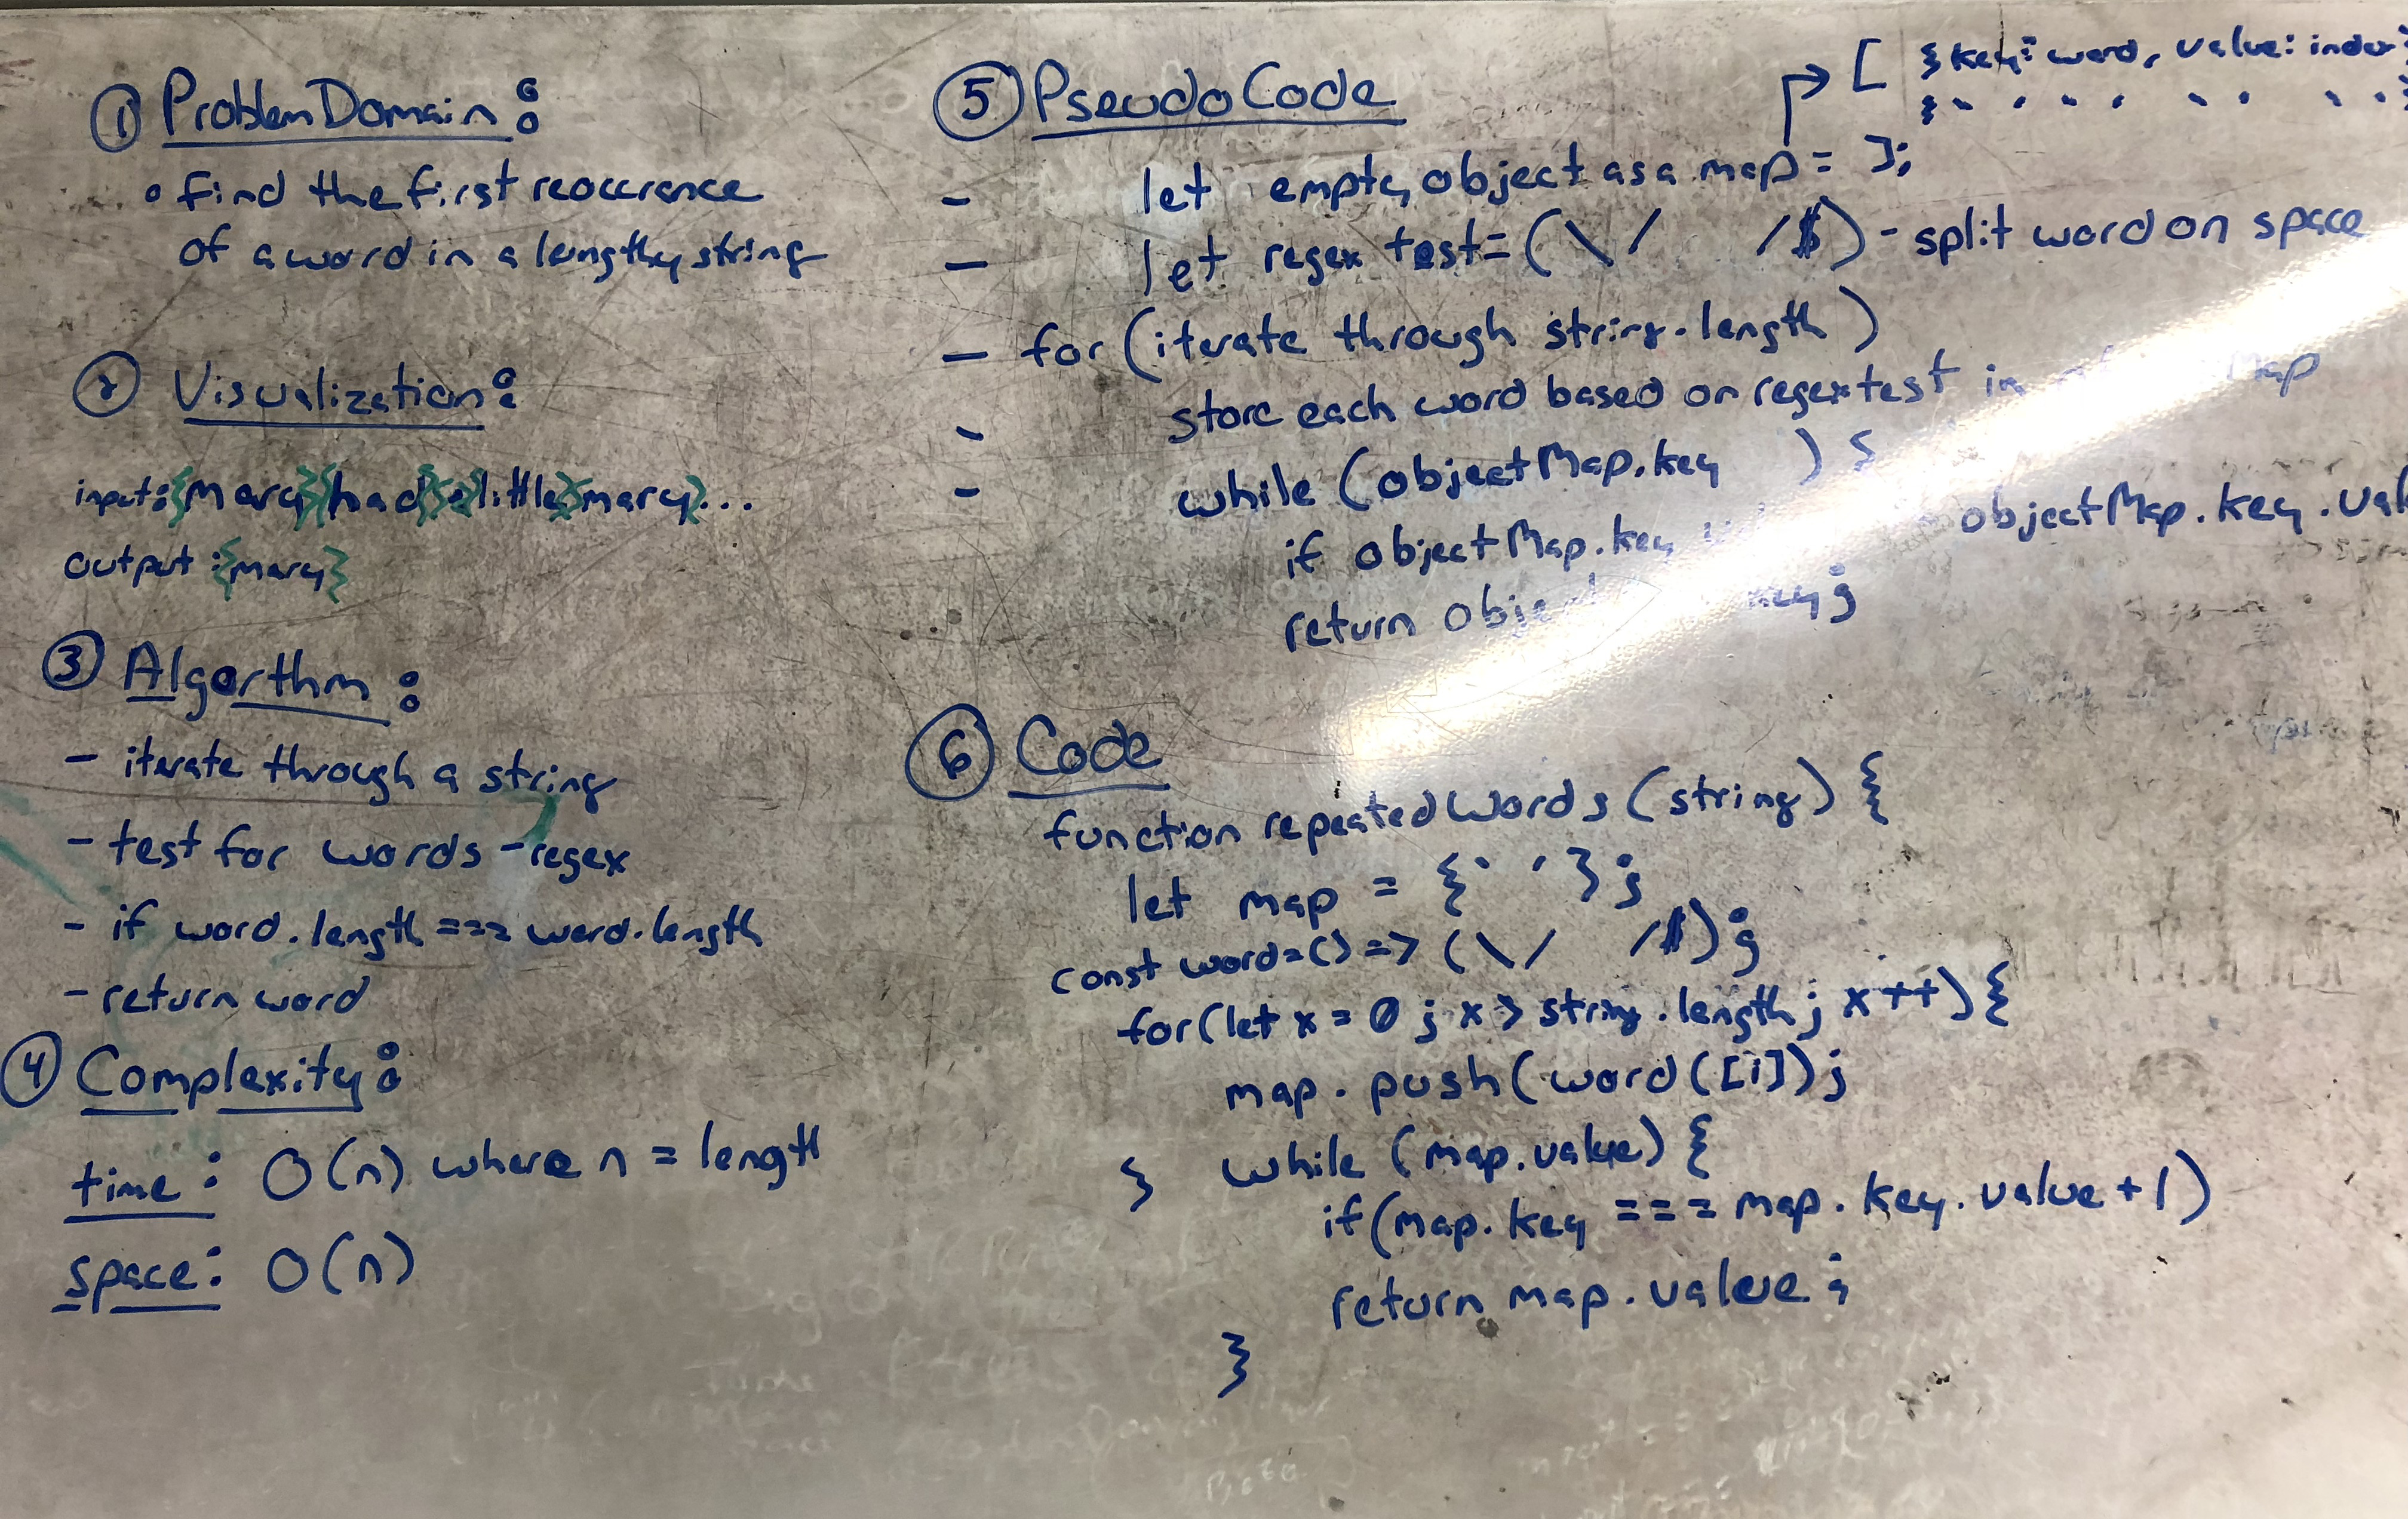 ① Problem Domain:
• find the first reoccrence
of a word in a lengthy string
② Visualization:
input: {mary}{had}{a}{little}{mary}...
output: {mary}
③ Algorthm:
- iterate through a string
- test for words - regex
- if word.length === word.length
- return word
④ Complexity:
time: O(n) where n = length
space: O(n)
⑤ PseudoCode
[ {key: word, value: index}
- let empty object as a map = ];
- let regex test = (\/ /$) - split word on space
- for (iterate through string.length)
- store each word based on regex test in Map
- while (objectMap.key ) {
if objectMap.key objectMap.key.val
return key;
⑥ Code
function repeatedWords (string) {
let map = {' '};
const word = () => (\/ /$);
for (let x = 0; x > string.length; x++) {
map.push(word([i]);
} while (map.value) {
if (map.key === map.key.value + 1)
return map.value;
}